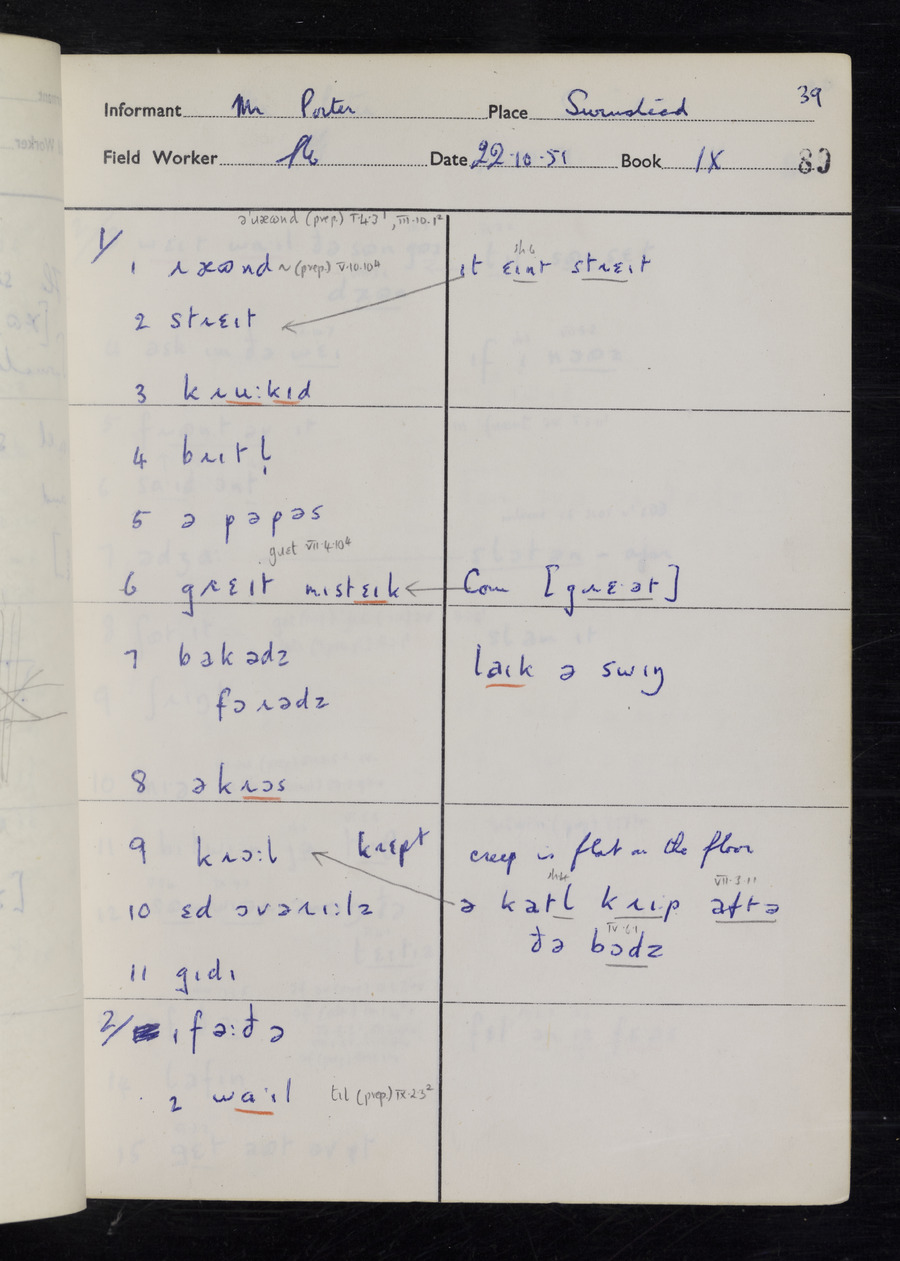 39
Informant Mr Porter Place Swinstead
Field Worker Date 22·10·51 Book IX 89
əˈɹæʊnd (prep.) V·4·3¹, III·10·1²
1/
1 ɹæʊnd ~ (prep.) V·10·10⁴ ɪt ɛɪnt stɹɛɪt
2 stɹɛɪt
3 kɹuːkɪd
4 bɹɪtl̩
5 ə pəpəs
gɹɛt VII·4·10⁴
6 gɹɛɪt mɪstɛɪk ← Com [gɹɛ·ət]
7 bakədz laɪk ə swɪŋ
fɔɹədz
8 əkɹɔs
9 kɹɔːl kɹɛpt creep is flat on the floor
10 ɛd ɔvəɹɪːlz ə katl kɹɪp aftə VII·3·11
ðə bɔdz
11 gɪdɪ
2/ 1 fəːðə
2 waˑɪl tɪl (prep.) IX·2·3²